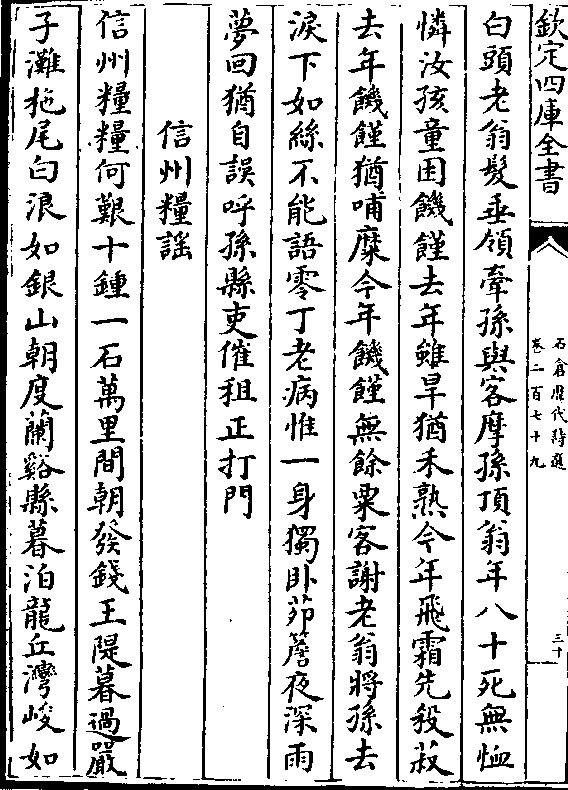 欽定四庫全書
石倉歷代詩選
卷二百七十九
三十
白頭老翁髮垂領牽孫與客摩孫頂翁年八十死無恤
憐汝孩童困饑饉去年雖旱猶禾熟今年飛霜先殺菽
去年饑饉猶哺糜今年饑饉無餘粟客謝老翁將孫去
淚下如絲不能語零丁老病惟一身獨卧茆簷夜深雨
夢回猶自誤呼孫縣吏催租正打門
信州糧謡
信州糧糧何艱十鍾一石萬里間朝發錢王隄暮過嚴
子灘拖尾白浪如銀山朝度蘭谿縣暮泊龍丘灣峻如